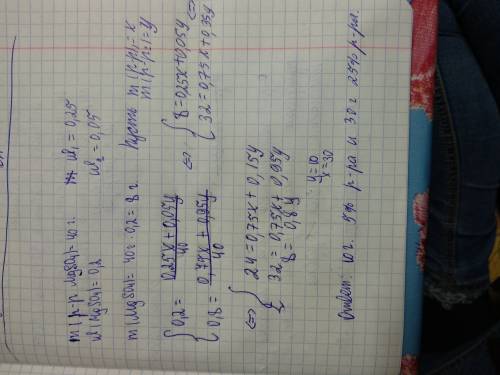 m(р-р MgSO4)=40 г. w1 = 0,25
w(MgSO4)=0,2 w2 = 0,05
m(MgSO4)=40г·0,2=8 г. Пусть m(р-р1)=x
m(р-р2)=y
{ 0,2 = 0,25x + 0,05y / 40 <=> { 8=0,25x+0,05y <=>
0,8 = 0,75x + 0,95y / 40 32=0,75x+0,95y
<=> { 24=0,75x+0,15y
32=0,75x+0,95y
8=0,8y
y=10
x=30
Ответ: 10г. 5% р-ра и 30г 25% р-ра.